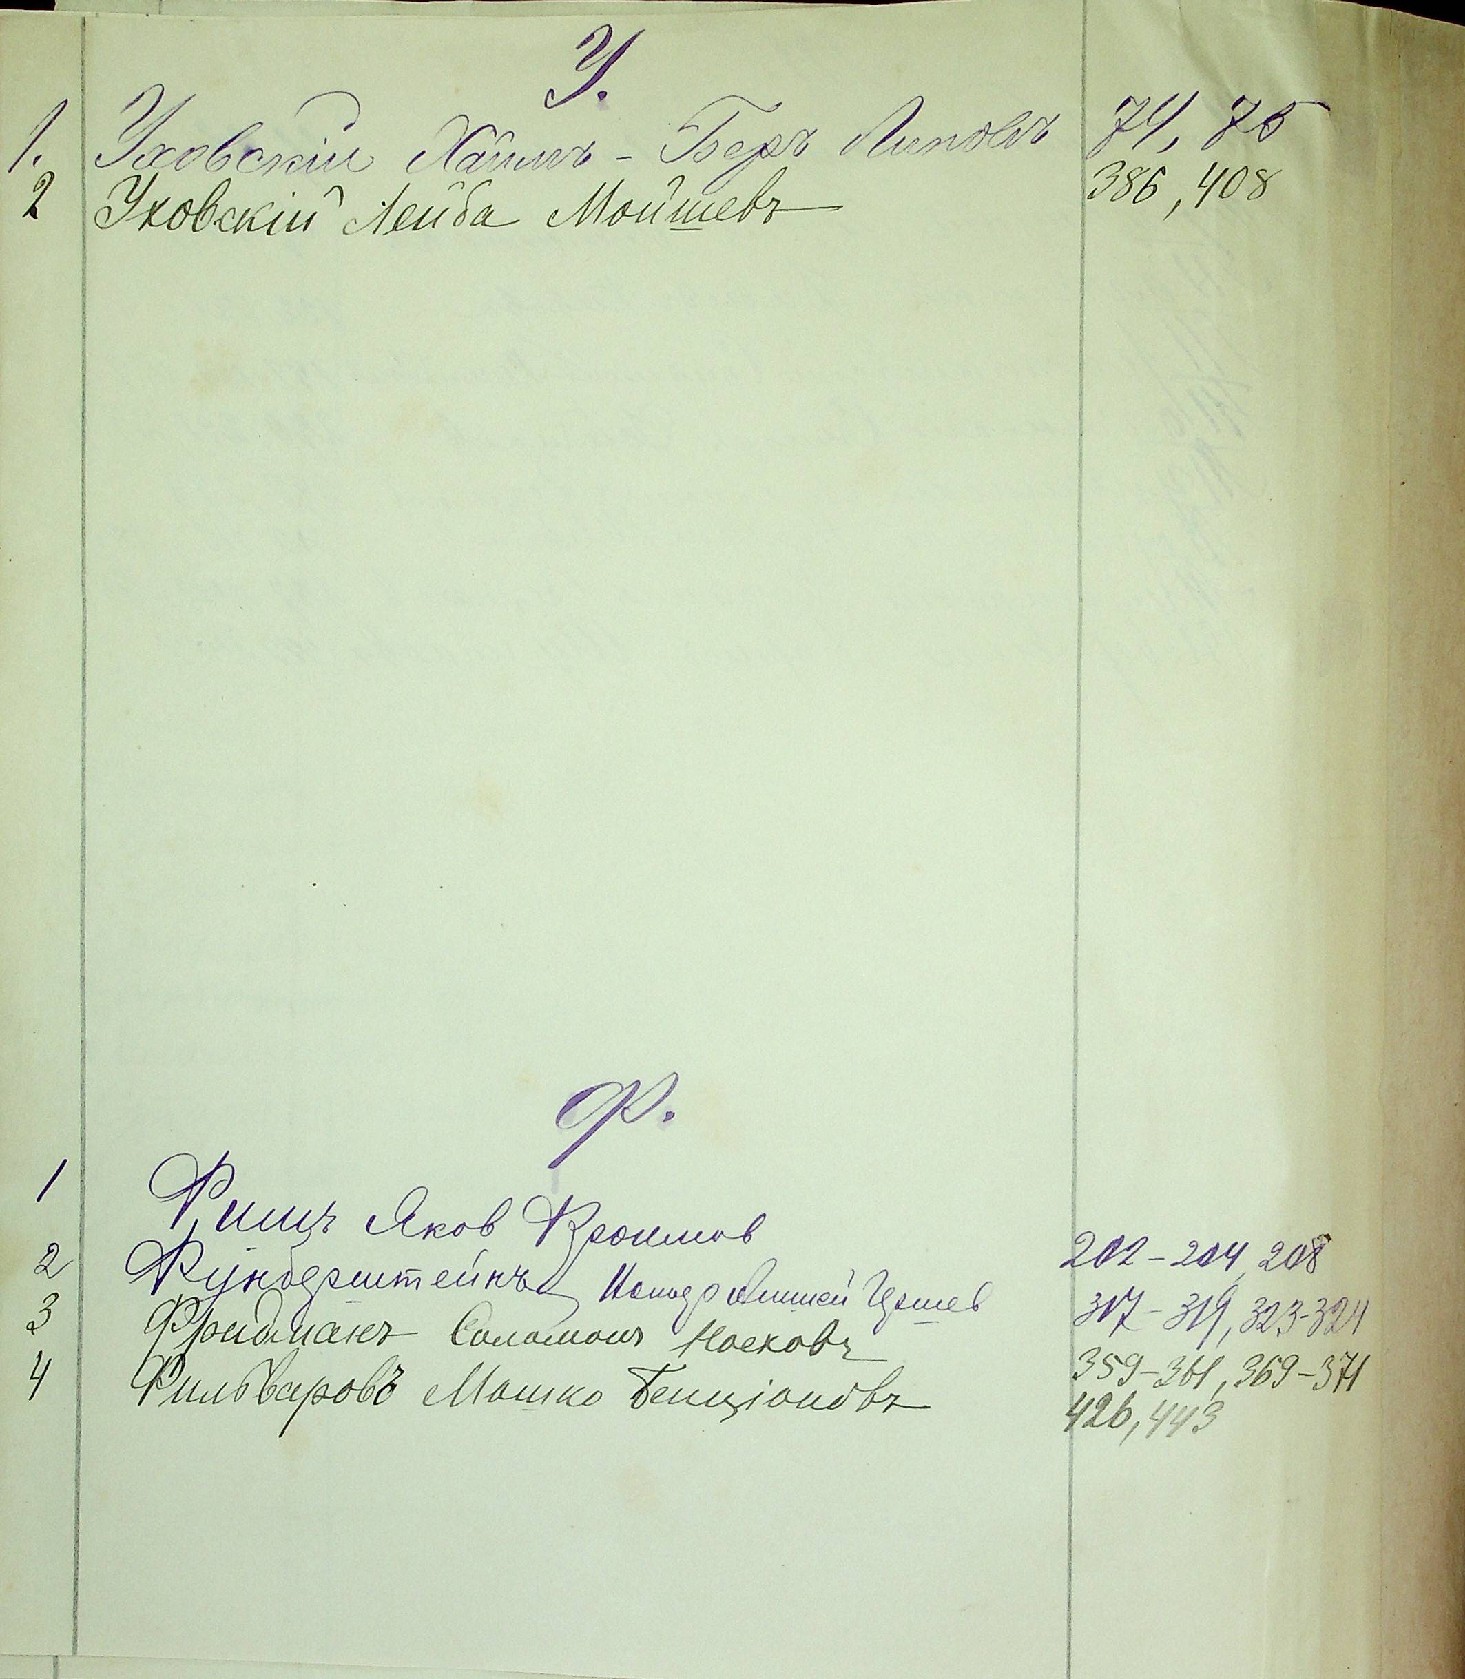 У.
1. Уховскій Хаимъ-Беръ Липовъ 74, 75
2 Уховскій Лейба Мойшевъ 386, 408
Ф.
1 Фишъ Яков Фроимов 202-204, 208
2 Функберштейнъ Гершев 317-319, 323-324
3 Фридманъ Соломонъ Носковъ 359-361, 369-371
4 Фильваровъ Мошко Бенціоновъ 426, 443